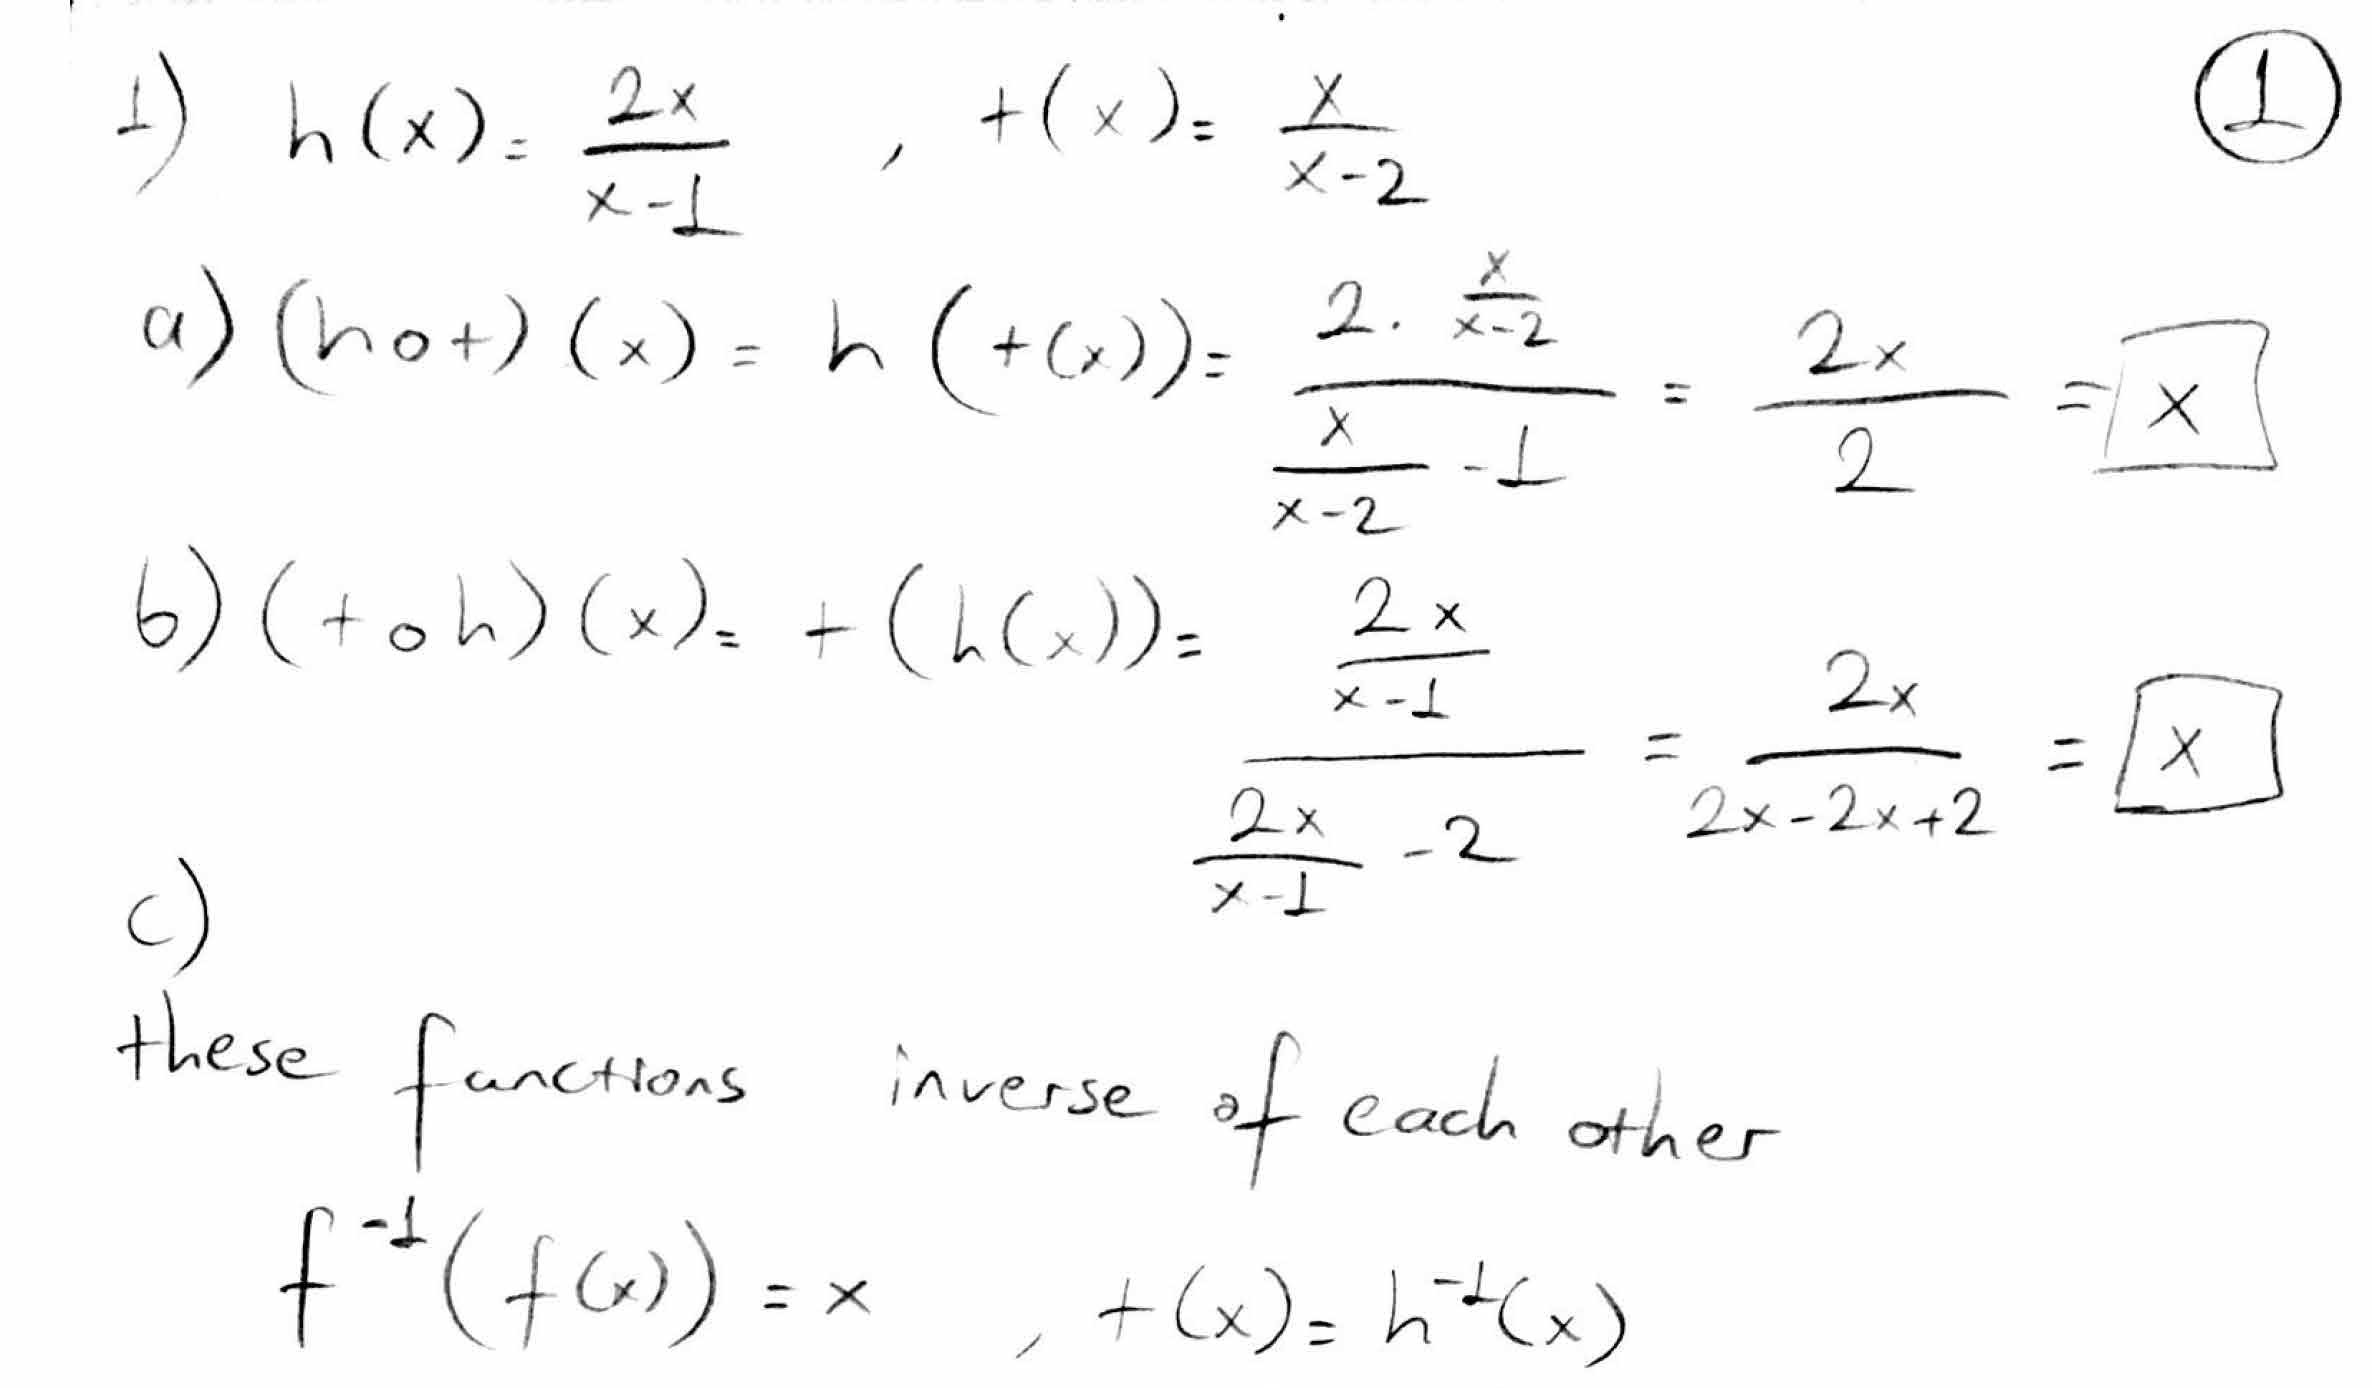 1) h(x) = 2x/(x-1) , t(x) = x/(x-2)
①
a) (h o t)(x) = h(t(x)) = (2 . x/(x-2))/(x/(x-2) - 1) = 2x/2 = x
b) (t o h)(x) = t(h(x)) = (2x/(x-1))/(2x/(x-1) - 2) = 2x/(2x-2x+2) = x
c)
these functions inverse of each other
f⁻¹(f(x)) = x , t(x) = h⁻¹(x)